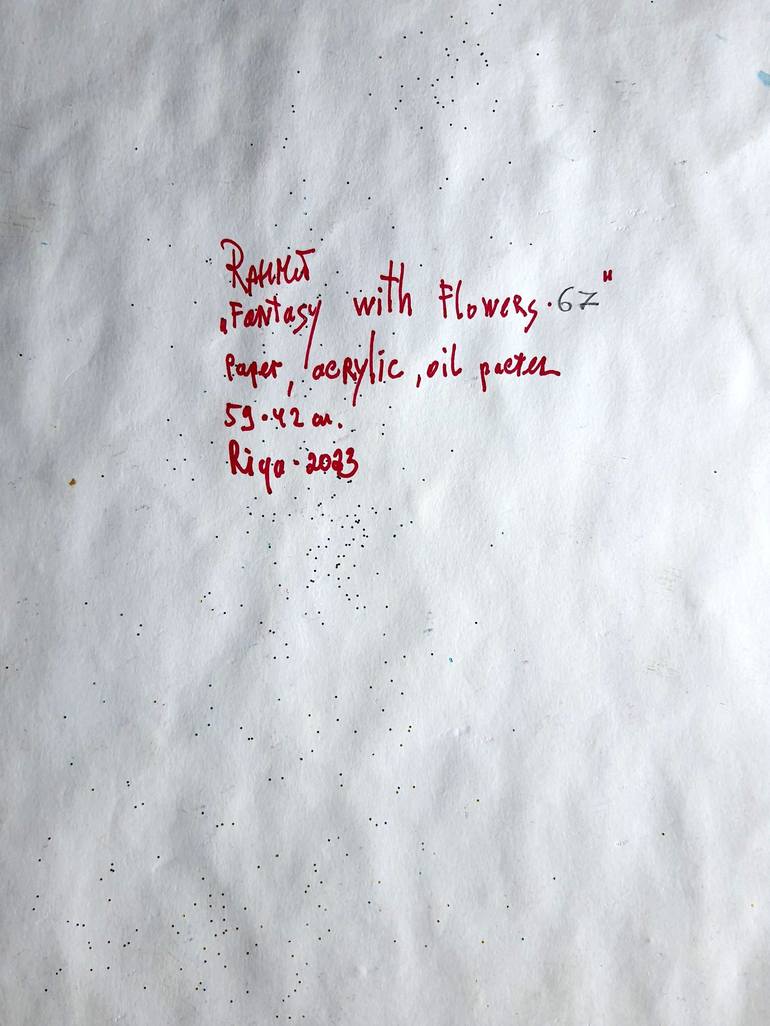 „Fantasy with Flowers·67"
Paper, acrylic, oil pastel
59·42 cm.
Riga·2023